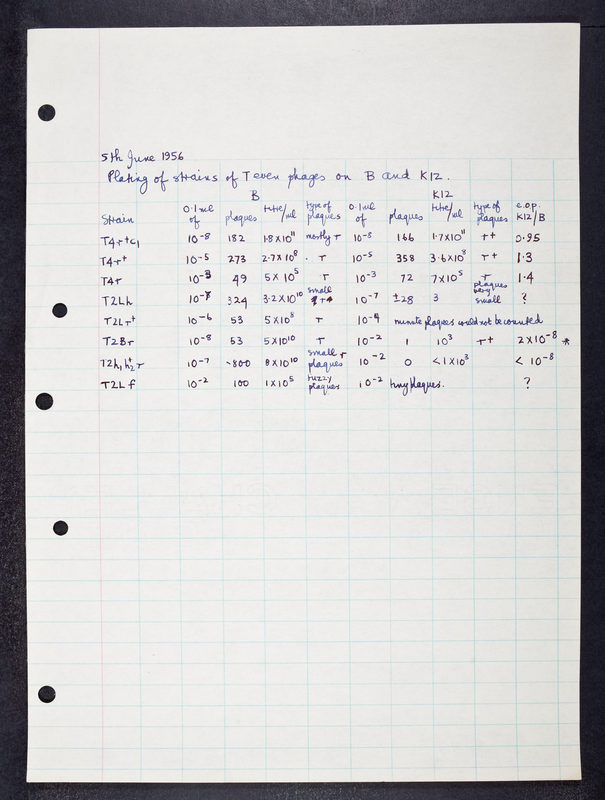 5th June 1956
Plating of strains of T even phages on B and K12.
B K12
Strain 0.1 ml of plaques titre/ml type of plaques 0.1 ml of plaques titre/ml type of plaques e.o.p. K12/B
T4r+c1 10-8 182 1.8×10^11 mostly r 10-8 166 1.7×10^11 r+ 0.95
T4r+ 10-5 273 2.7×10^8 . r 10-5 358 3.6×10^8 r+ 1.3
T4r 10-3 49 5×10^5 r 10-3 72 7×10^5 r 1.4
T2Lh 10-7 324 3.2×10^10 small 10-7 ±28 3 plaques very small ?
T2Lr+ 10-6 53 5×10^8 r 10-4 minute plaques could not be counted
T2Br 10-8 53 5×10^10 r 10-2 1 10^3 r+ 2×10-8 *
T2h1h2+r 10-7 ~800 8×10^10 small r plaques 10-2 0 <1×10^3 < 10-8
T2Lf 10-2 100 1×10^5 fuzzy plaques 10-2 tiny plaques. ?